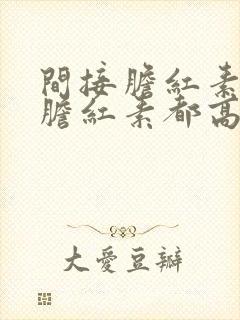 間接膽紅素
膽紅素都高
大愛豆瓣